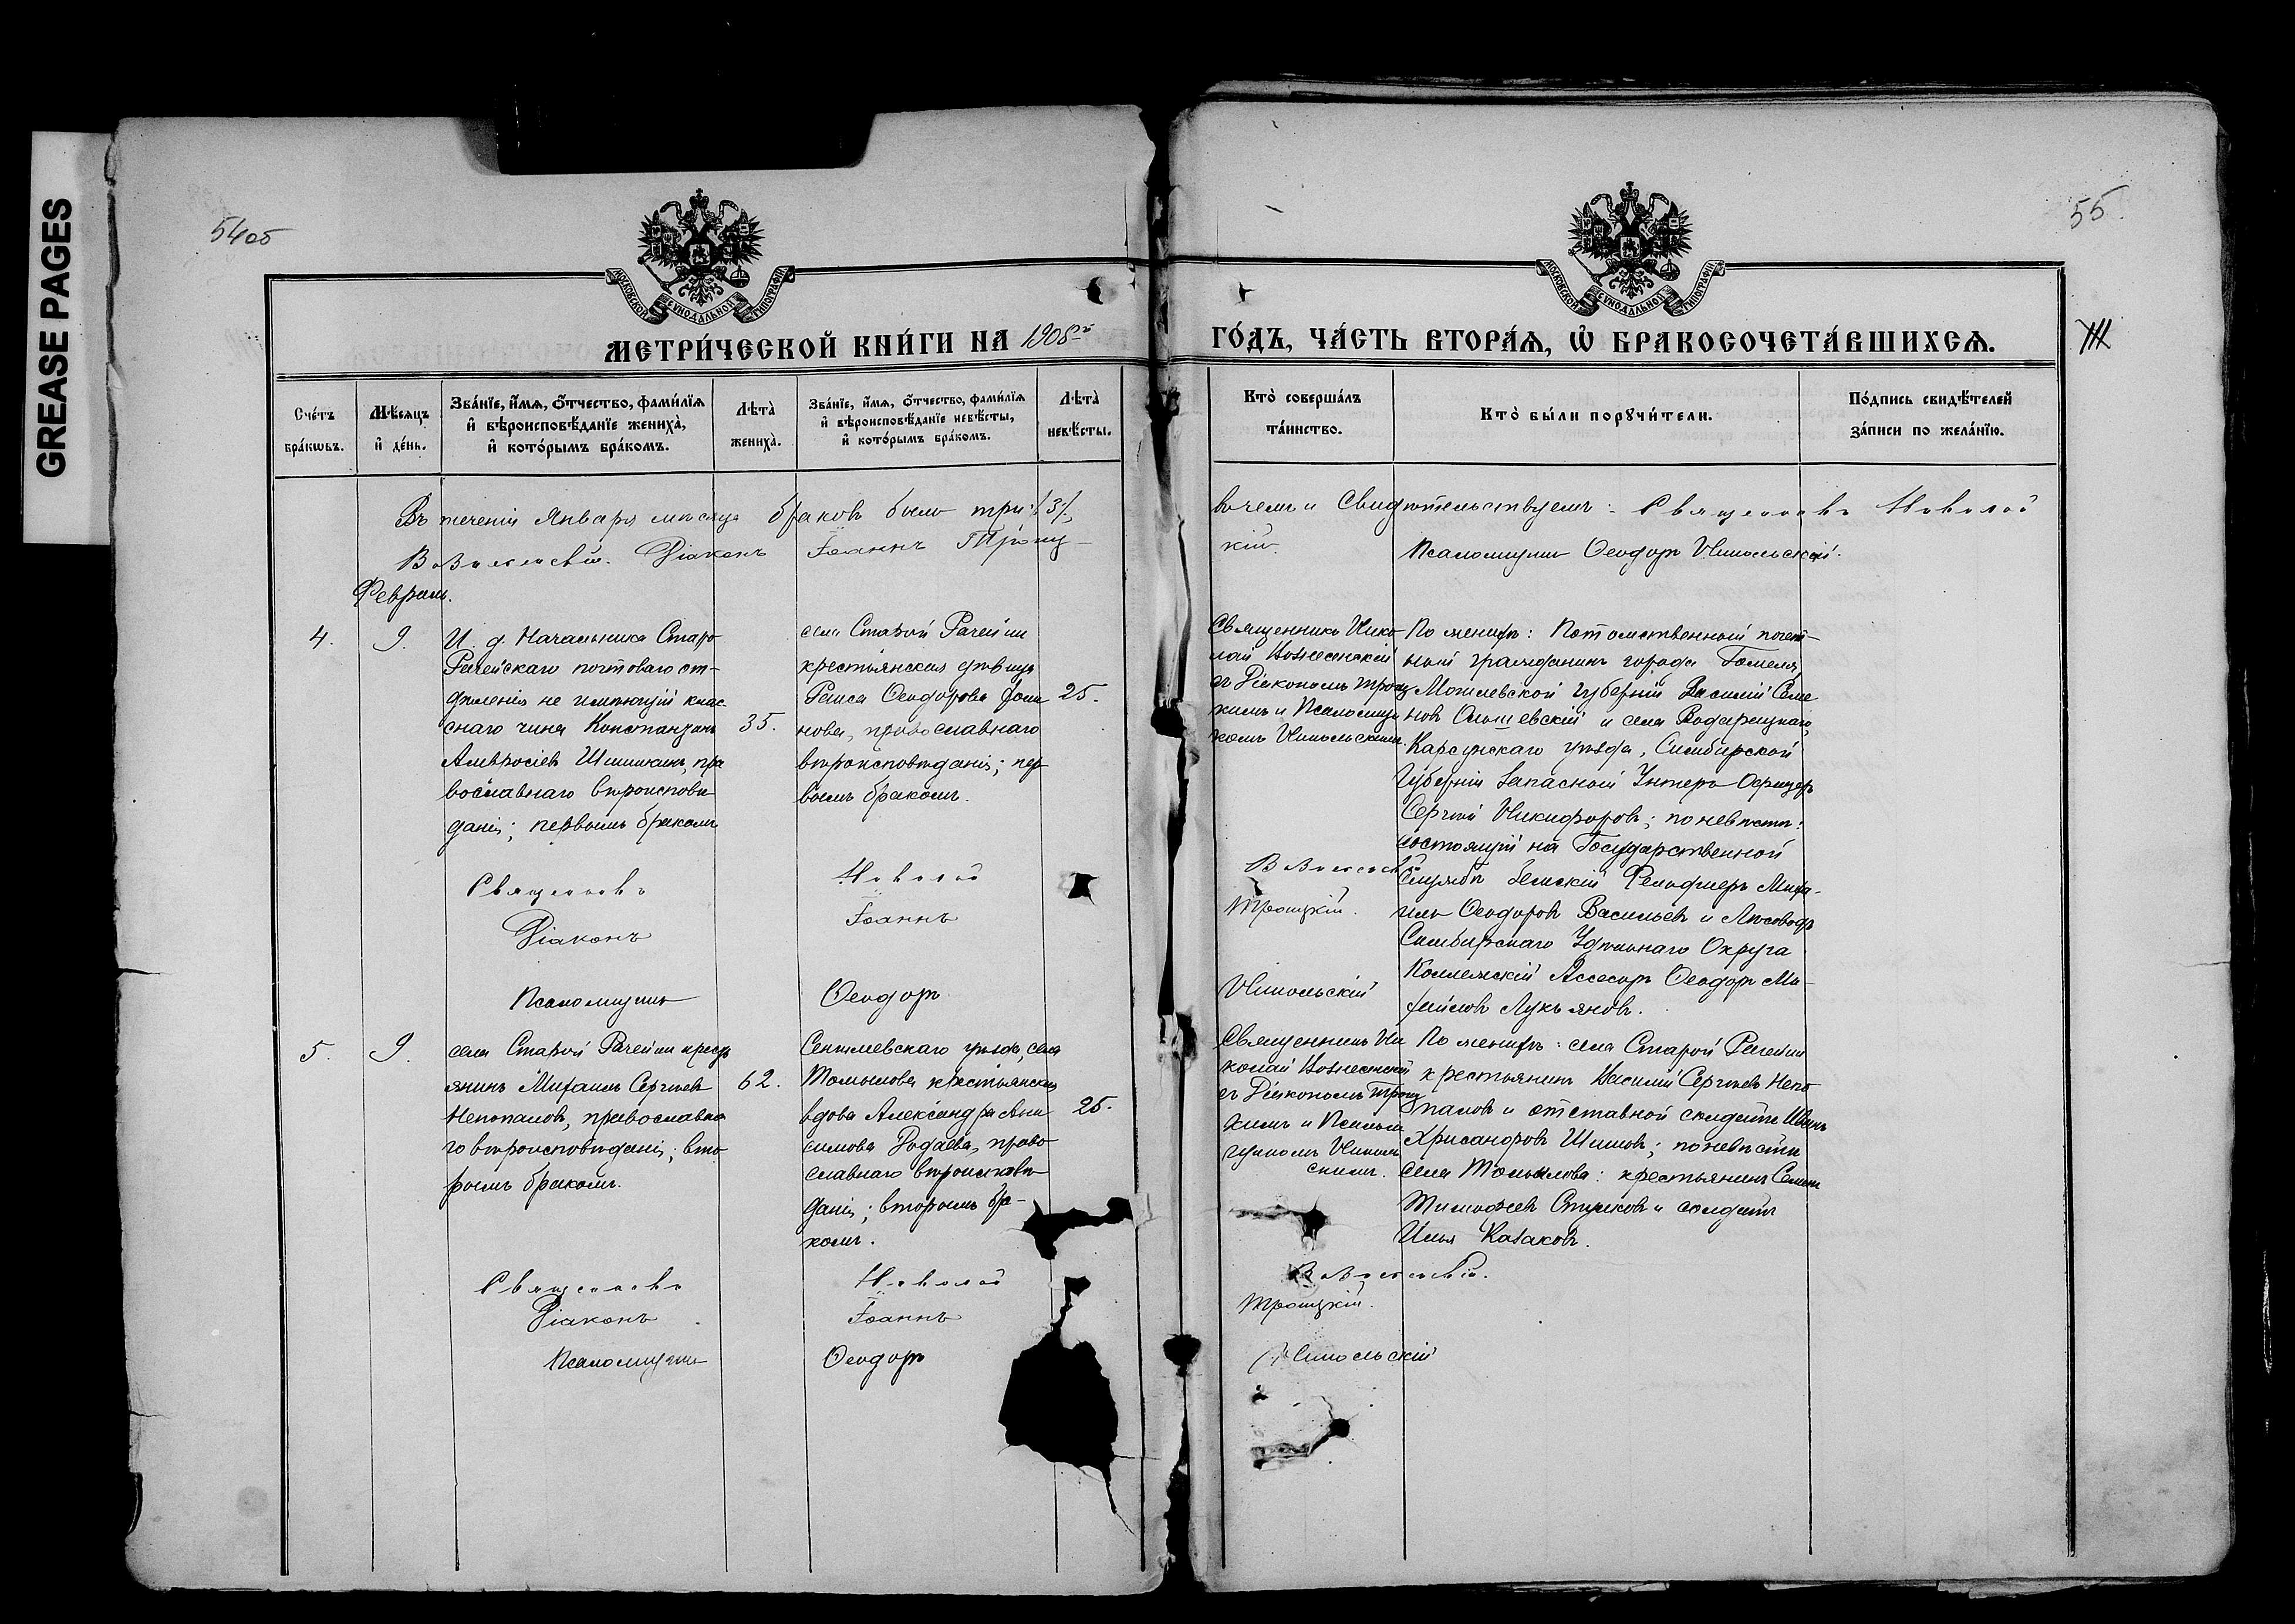 GREASE PAGES
54об
55
МОСКОВСКОЙ СѴНОДАЛЬНОЙ ТИПОГРАФІИ
МОСКОВСКОЙ СѴНОДАЛЬНОЙ ТИПОГРАФІИ
МЕТРИ́ЧЕСКОЙ КНИ́ГИ НА 1908й
ГО́ДЪ, ЧА́СТЬ ВТОРА́Ѧ, Ѿ БРАКОСОЧЕТА́ВШИХСѦ.
III
Сче́тъ бра́кѡвъ.
Мѣ́сяцъ и҆ де́нь.
Зва́нїе, и҆́мя, ѻ҆́тчество, фами́лїя
и҆ вѣроисповѣ́данїе жениха̀,
и҆ кото́рымъ бра́комъ.
Лѣта̀ жениха̀.
Зва́нїе, и҆́мя, ѻ҆́тчество, фами́лїя
и҆ вѣроисповѣ́данїе невѣ́сты,
и҆ кото́рымъ бра́комъ.
Лѣта̀ невѣ́сты.
Кто̀ соверша́лъ та́инство.
Кто̀ бы́ли порꙋчи́тели.
По́дпись свидѣ́телей за́писи по жела́нїю.
Въ теченіи Января мѣсяца браковъ было три (3),
в чемъ и Свидѣтельствуемъ: Священникъ Николай
Вознесенскій. Діаконъ Іоаннъ Троиц-
кій. Псаломщикъ Ѳеодоръ Никольскій.
Февраль.
4.
9.
И. д. Начальника Старо
Рачейскаго почтоваго от-
дѣленія не имѣющій клас
снаго чина Константинъ
Амвросіевъ Шишкинъ, пра
вославнаго вѣроисповѣ
данія; первымъ бракомъ
35.
села Старой Рачейки
крестьянская дѣвица
Раиса Ѳеодорова Фоми
нова, православнаго
вѣроисповѣданія; пер
вымъ бракомъ.
25.
Священникъ Нико
лай Вознесенскій
съ Діакономъ Троиц
кимъ и Псаломщи
комъ Никольскимъ.
По женихѣ: Потомственный почет-
ный гражданинъ города Гомеля
Могилевской губерніи Василій Семе
новъ Ольшевскій и села
Карсунскаго уѣзда, Симбирской
Губерніи Запасной Унтеръ Офицеръ
Сергѣй Никифоровъ; по невѣстѣ:
состоящій на Государственной
службѣ Земскій Фельдшеръ Миха-
илъ Ѳеодоровъ Васильевъ и Лѣсоводъ
Симбирскаго Удѣльнаго Округа
Коллежскій Ассесоръ Ѳеодоръ Ми-
хайловъ Лукьяновъ.
Священникъ Николай Вознесенскій
Діаконъ Іоаннъ Троицкій.
Псаломщикъ Ѳеодоръ Никольскій
5.
9.
села Старой Рачейки крест
янинъ Михаилъ Сергѣевъ
Непопаловъ, православна
го вѣроисповѣданія; вто
рымъ бракомъ.
62.
Сенгилевскаго уѣзда, села
Томышова крестьянская
вдова Александра Ани
симова Родаева, право
славнаго вѣроисповѣ
данія; вторымъ бра-
комъ.
25.
Священникъ Ни
колай Вознесенскій
съ Діакономъ Троиц
кимъ и Псалом
щикомъ Николь
скимъ.
По женихѣ: села Старой Рачейки
крестьянинъ Василій Сергѣевъ Непо
паловъ и отставной солдатъ Иванъ
Хрисанфовъ Шишовъ; по невѣстѣ
села Томышова: крестьянинъ Семенъ
Тимофеевъ и солдатъ
Илья Казаковъ.
Священникъ Николай Вознесенскій.
Діаконъ Іоаннъ Троицкій.
Псаломщикъ Ѳеодоръ Никольскій